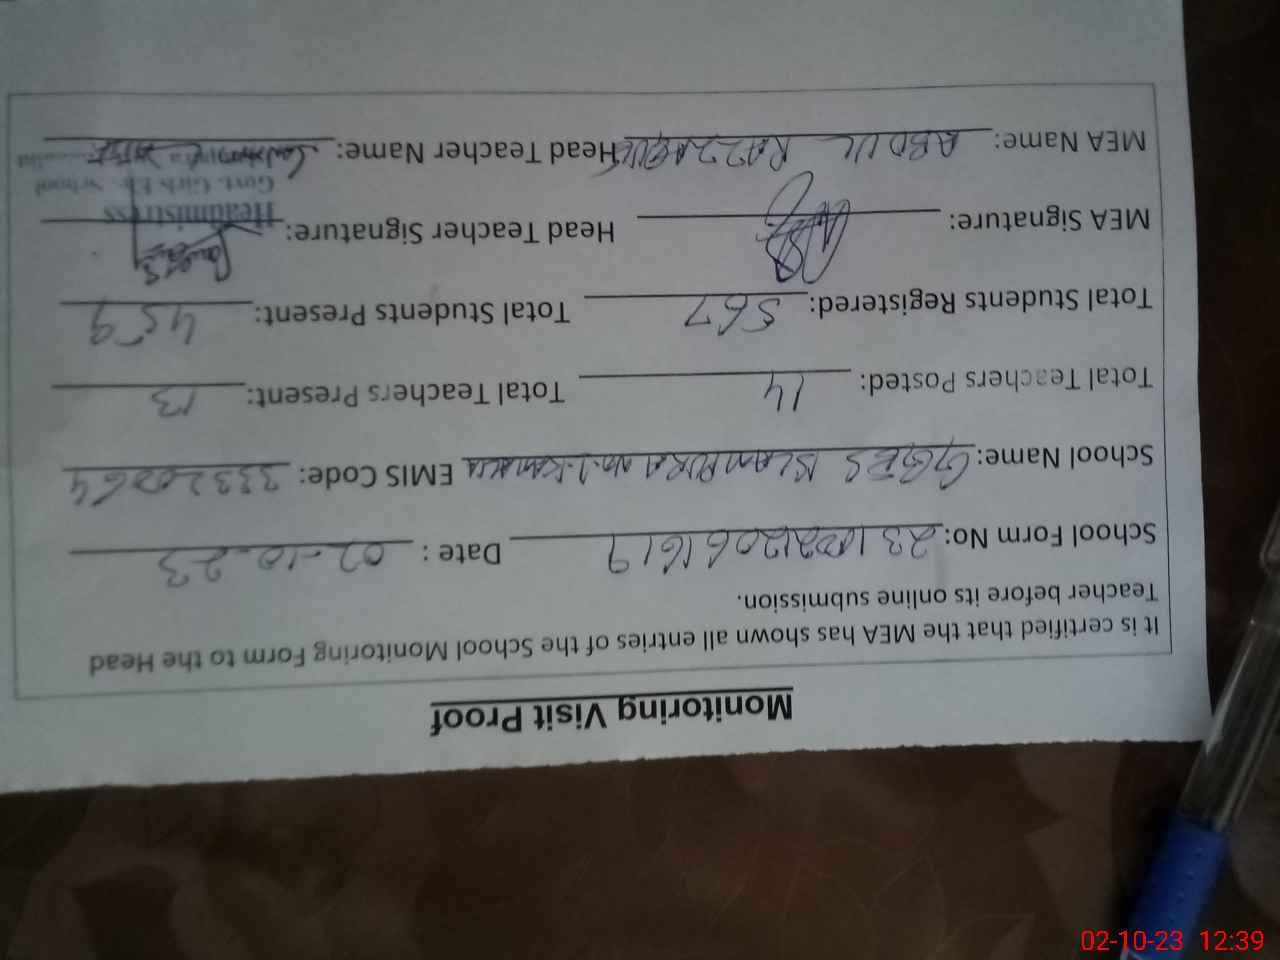 Monitoring Visit Proof
It is certified that the MEA has shown all entries of the School Monitoring Form to the Head
Teacher before its online submission.
School Form No: 23100212061619 Date : 02-10-23
School Name: GGES ISLAMPURA No.1 EMIS Code: 33320064
Total Teachers Posted: 14 Total Teachers Present: 13
Total Students Registered: 567 Total Students Present: 459
MEA Signature: Head Teacher Signature:
Headmistress
MEA Name: ABDUL RAZZAQUE Head Teacher Name:
Govt. Girls School
02-10-23 12:39